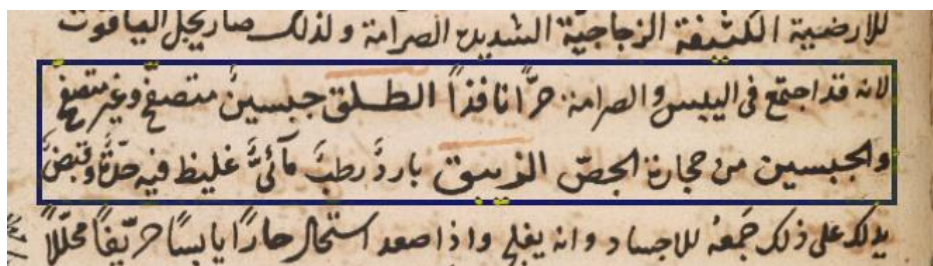 للارضية الكثيفة الزجاجية الشديدة الصرامة ولذلك صار يحل الياقوت
لانه قد اجتمع فى اليبس والصرامة حرًّا نافذاً الطلق جبسين متصفح وغير متصفح
والجبسين من حجارة الجصّ الزيبق بارد رطب مآئىّ غليظ فيه حدّة وقبض
يدلك على ذلك جمعه للاجساد وانه يفلج واذا صعد استحال حارًا يابسًا حرّيفًا محللًا